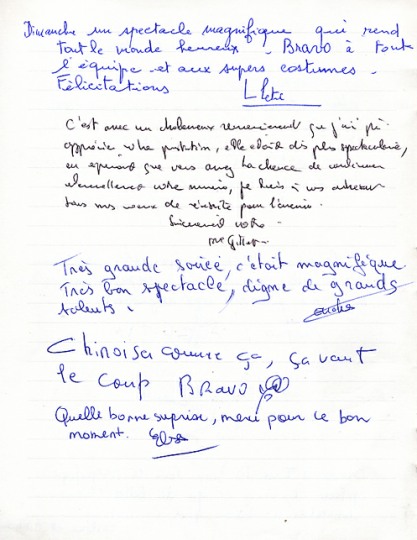 Dimanche un spectacle magnifique qui rend
tout le monde heureux - Bravo à toute
l'équipe et aux supers costumes -
Félicitations
C'est avec un chaleureux remerciement que j'ai pû
apprécier votre prestation, elle était des plus spectaculaire,
en espérant que vous ayez la chance de continuer
votre numéro, je
tous mes vœux de réussite pour l'avenir.
Très grande soirée, c'était magnifique.
Très bon spectacle, digne de grands
talents.
comme ça, ça vaut
le coup BRAVO
Quelle bonne suprise, merci pour ce bon
moment.